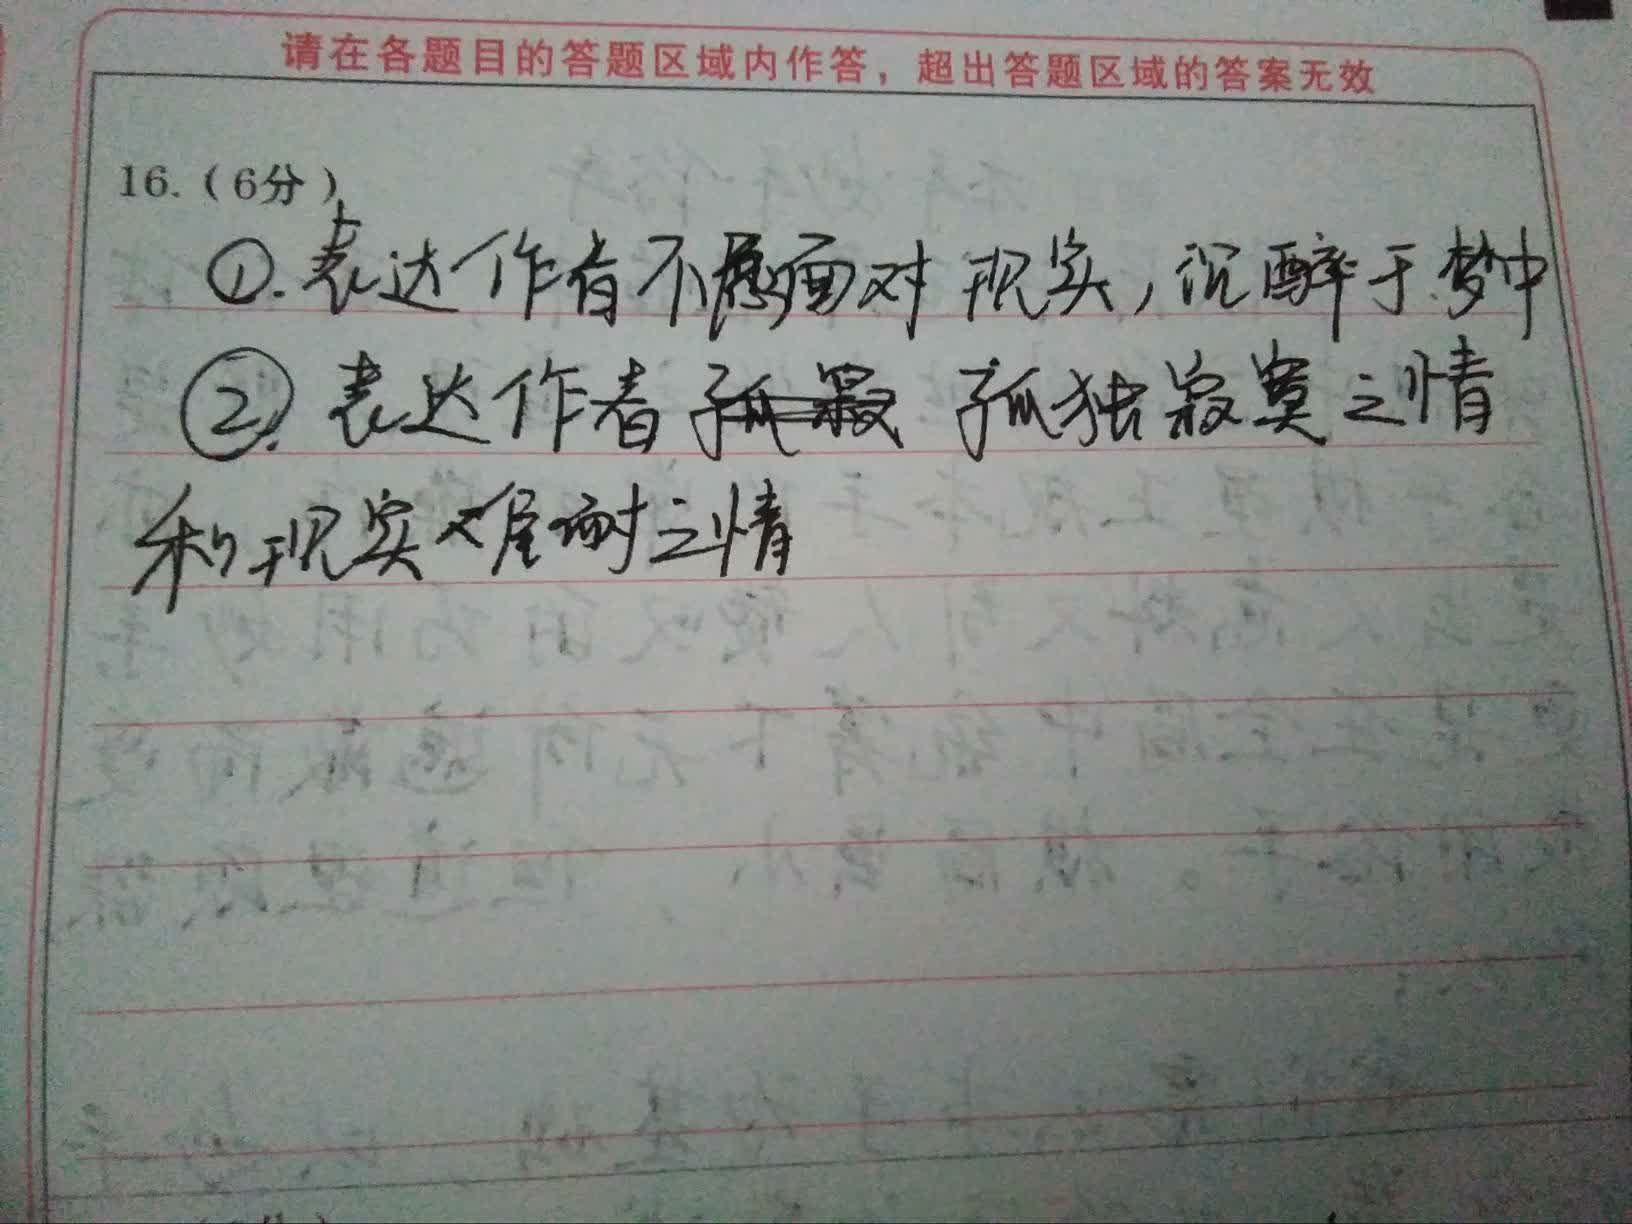 请在各题目的答题区域内作答，超出答题区域的答案无效
16.（6分）
①.表达作者不愿面对现实，沉醉于梦中
②.表达作者孤寂 孤独寂寞之情
和现实难面对之情